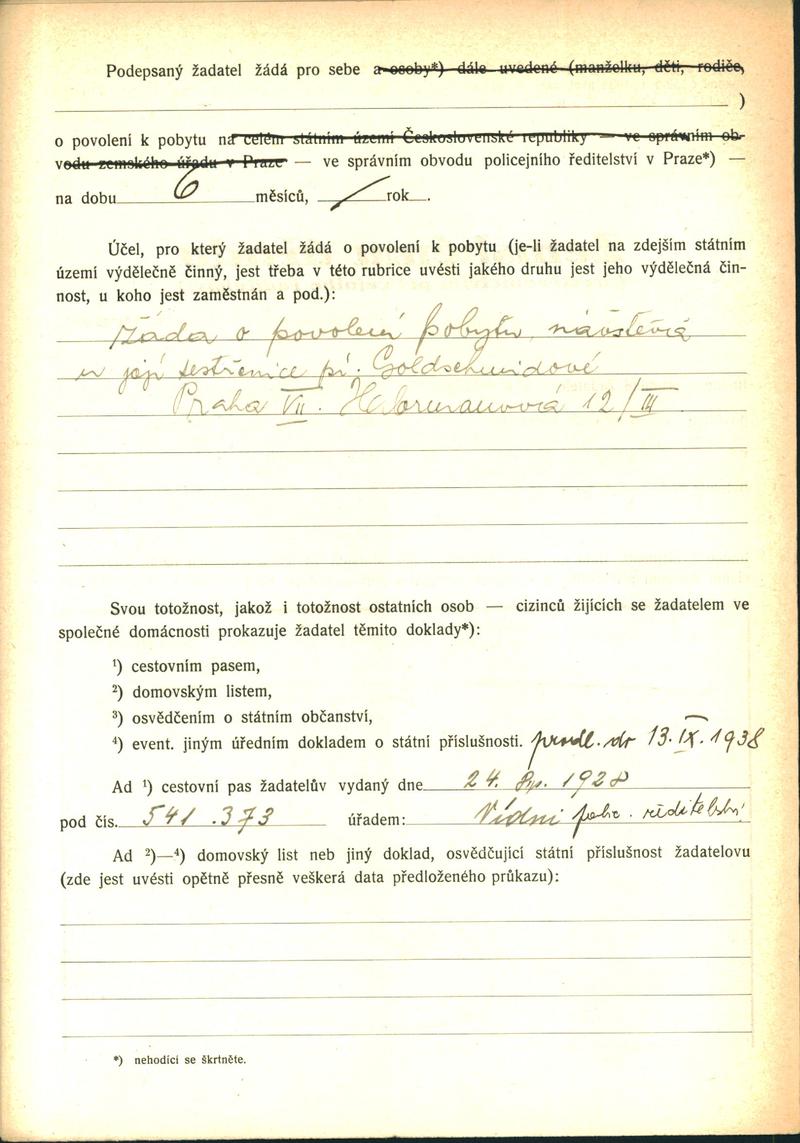 Podepsaný žadatel žádá pro sebe a osoby*) dále uvedené (manželku, děti, rodiče,
)
o povolení k pobytu na celém státním území Československé republiky — ve správním ob-
vodu zemského úřadu v Praze — ve správním obvodu policejního ředitelství v Praze*) —
na dobu 6 měsíců, / rok .
Účel, pro který žadatel žádá o povolení k pobytu (je-li žadatel na zdejším státním
území výdělečně činný, jest třeba v této rubrice uvésti jakého druhu jest jeho výdělečná čin-
nost, u koho jest zaměstnán a pod.):
Žáda o povolení pobytu, návštěvía
u její sestřenice pí. Goldschmidové
Praha VII. Habrmanová 12/III
Svou totožnost, jakož i totožnost ostatních osob — cizinců žijících se žadatelem ve
společné domácnosti prokazuje žadatel těmito doklady*):
¹) cestovním pasem,
²) domovským listem,
³) osvědčením o státním občanství,
⁴) event. jiným úředním dokladem o státní příslušnosti. prodl. do 13.IX.1938
Ad ¹) cestovní pas žadatelův vydaný dne 24. 1928
pod čís. 541.373 úřadem: Vídni polic. ředitelství
Ad ²)—⁴) domovský list neb jiný doklad, osvědčující státní příslušnost žadatelovu
(zde jest uvésti opětně přesně veškerá data předloženého průkazu):
*) nehodící se škrtněte.